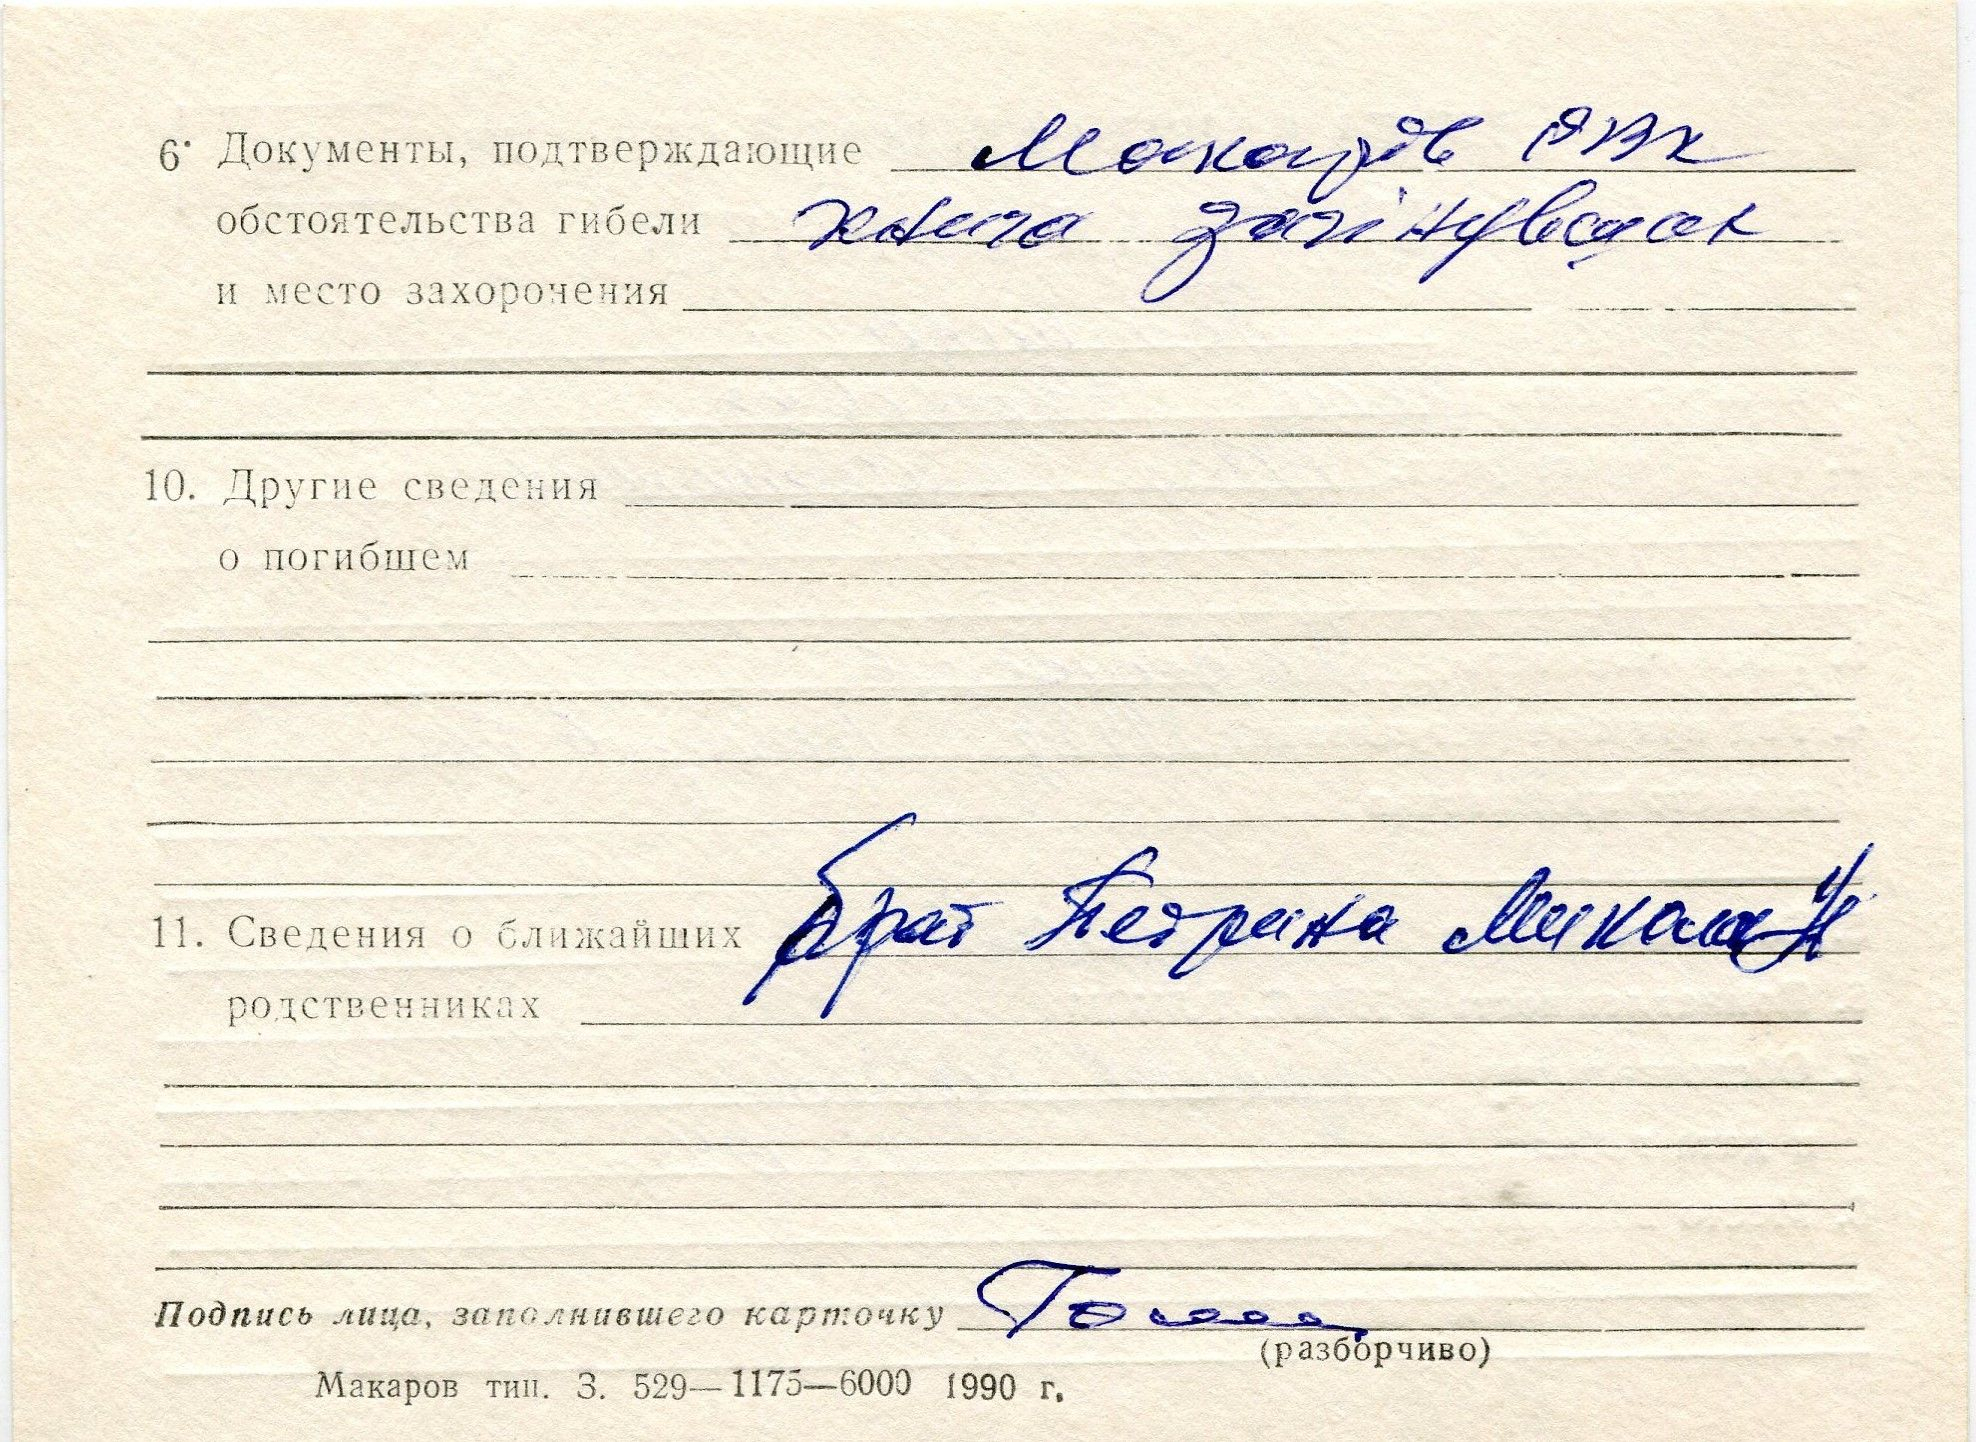 6. Документы, подтверждающие Макарів РВК
обстоятельства гибели книга загінувших
и место захоронения
10. Другие сведения
о погибшем
11. Сведения о ближайших брат Петрина Микола
родственниках
Подпись лица, заполнившего карточку
(разборчиво)
Макаров тип. З. 529—1175—6000 1990 г.